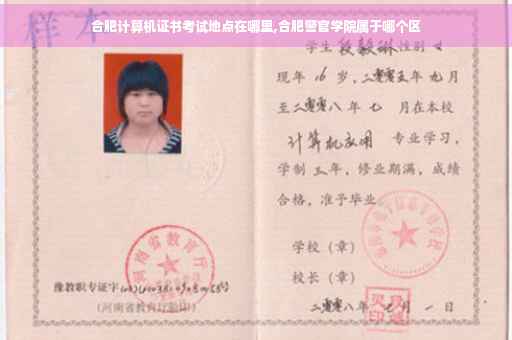 合肥计算机证书考试地点在哪里,合肥警官学院属于哪个区
样本
学生段毅琳性别女
现年16岁,二零零五年九月
至二零零八年七月在本校
计算机应用专业学习,
学制三年,修业期满,成绩
合格,准予毕业
学校(章)
校长(章)
二零零八年七月一日
河南省教育厅
豫教职专证字
(河南省教育厅验印)